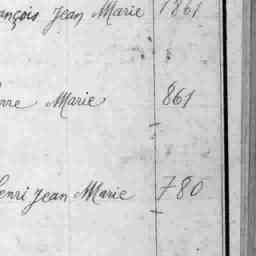 ançois Jean Marie 1861
rre Marie 861
enri Jean Marie 780